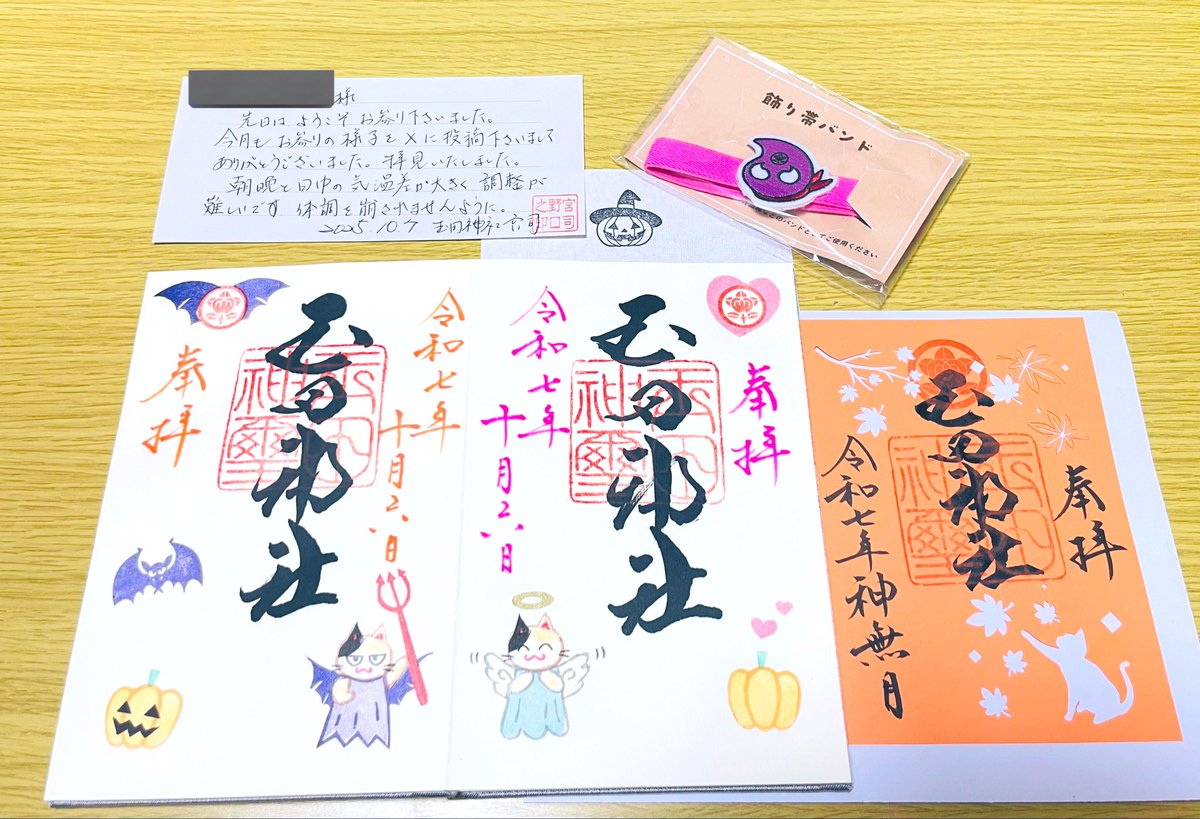 様
先日はようこそお参り下さいました。
今月もお参りの様子をXに投稿下さいまして
ありがとうございました。拝見いたしました。
朝晩と日中の気温差が大きく調整が
難しいです 体調を崩されませんように。
2025 10.7 玉田神社宮司
飾り帯バンド
などのバンドとしてご使用ください
奉拝
玉田神社
令和七年
十月六日
令和七年
十月六日
玉田神社
奉拝
奉拝
玉田神社
令和七年神無月